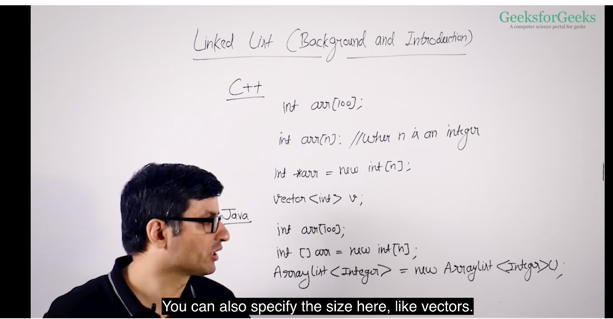 GeeksforGeeks
A computer science portal for geeks
Linked List (Background and Introduction)
C++
int arr[100];
int arr[n]; //When n is an integer
int *arr = new int[n];
vector<int> v;
Java
int arr[100];
int [] arr = new int[n];
ArrayList<Integer> = new ArrayList<Integer>();
You can also specify the size here, like vectors.